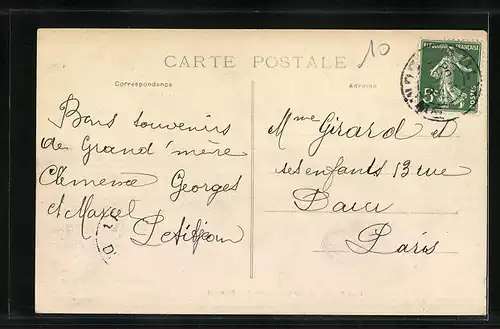 10
CARTE POSTALE
Correspondance
Adresse
RÉPUBLIQUE FRANÇAISE
5c
POSTES
Bons souvenirs
de Grand'mère
Clémence Georges
et Marcel
Petitjean
Mme Girard et
ses enfants 13 rue
Darcy
Paris